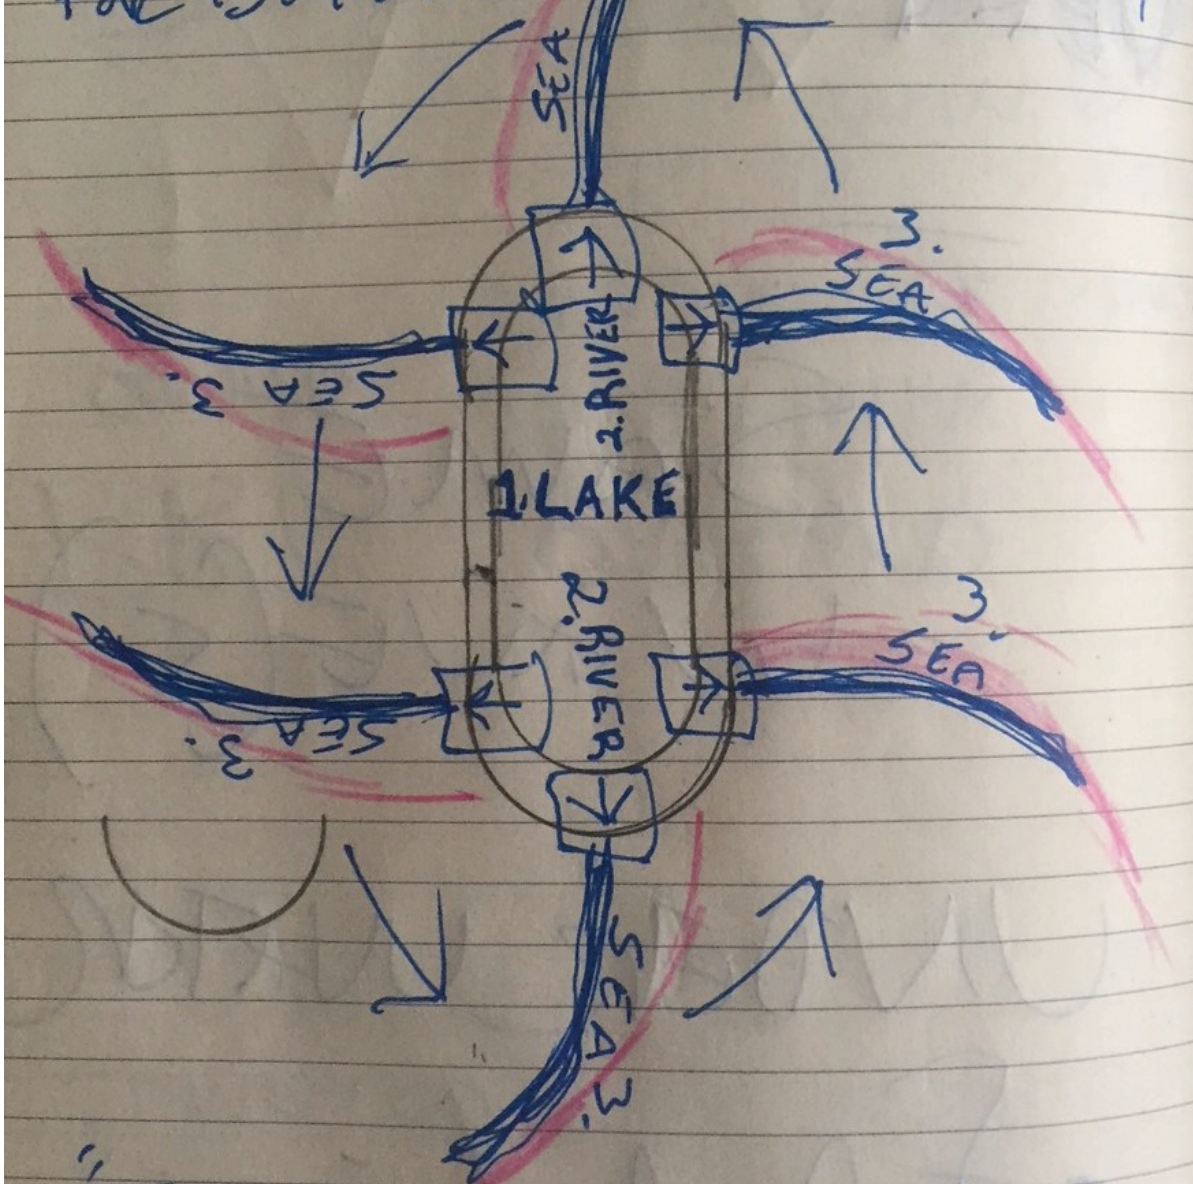 SEA
3.
SEA
SEA 3.
2. RIVER
1. LAKE
2. RIVER
3.
SEA
SEA
3.
SEA 3.